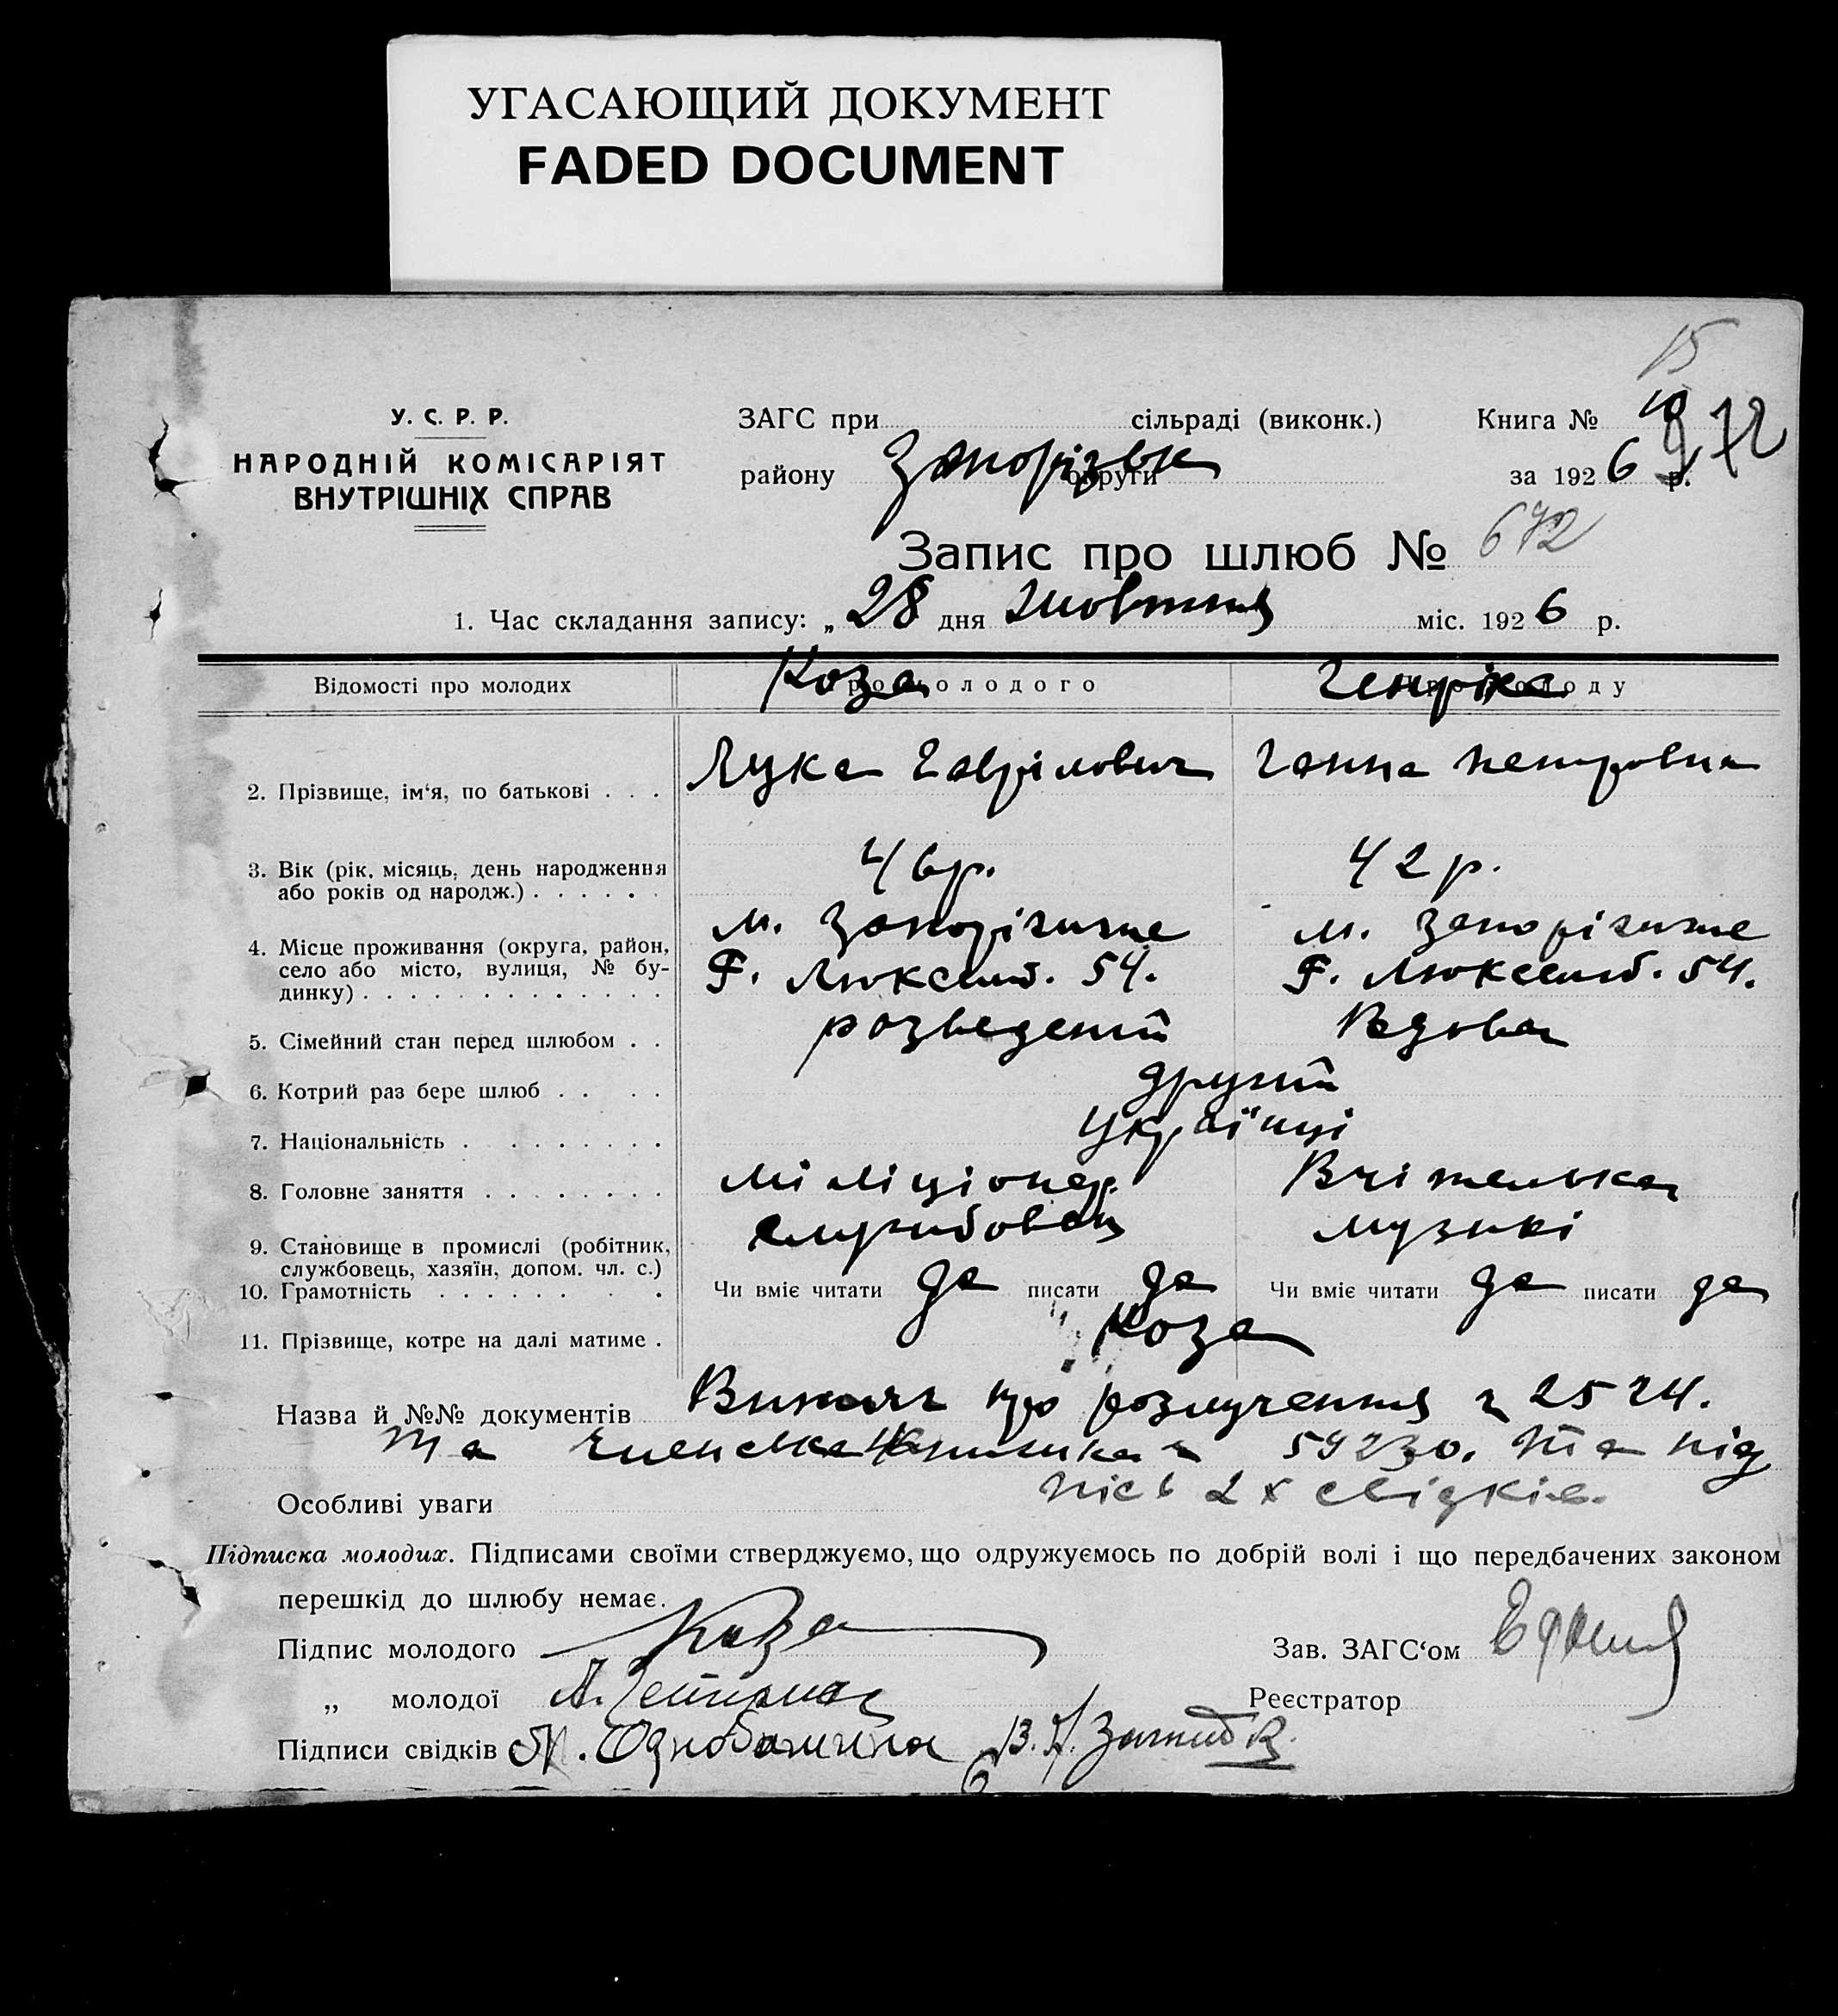 УГАСАЮЩИЙ ДОКУМЕНТ
FADED DOCUMENT
15
У. С. Р. Р.
НАРОДНІЙ КОМІСАРІЯТ
ВНУТРІШНІХ СПРАВ
ЗАГС при сільраді (виконк.) Книга №
району Запорізьк округи за 1926 р.
Запис про шлюб № 672
1. Час складання запису: „28 дня жовтня міс. 1926 р.
Відомості про молодих Коза Генріка
2. Прізвище, ім'я, по батькові . . . Лука Гаврілович Ганна Петровна
3. Вік (рік, місяць, день народження 46р. 42 р.
або років од народж.) . . . . . .
4. Місце проживання (округа, район, м. Запоріжже м. Запоріжже
село або місто, вулиця, № бу- Р. Люксемб. 54. Р. Люксемб. 54.
динку) . . . . . . . . . . . . .
5. Сімейний стан перед шлюбом . . розведений Вдова
6. Котрий раз бере шлюб . . . . другий
7. Національність . . . . . . . . . українці
8. Головне заняття . . . . . . . . міліціонер. Вчітелька
9. Становище в промислі (робітник, службовець музикі
службовець, хазяїн, допом. чл. с.)
10. Грамотність . . . . . . . . Чи вміє читати да писати да Чи вміє читати да писати да
11. Прізвище, котре на далі матиме . Коза
Назва й №№ документів Витяг про розлучення 2524.
Та членська книжка 59230. та під
Особливі уваги пісь 2х свідків.
Підписка молодих. Підписами своїми стверджуємо, що одружуємось по добрій волі і що передбачених законом
перешкід до шлюбу немає.
Підпис молодого Коза Зав. ЗАГС'ом
„ молодої А. Реєстратор
Підписи свідків